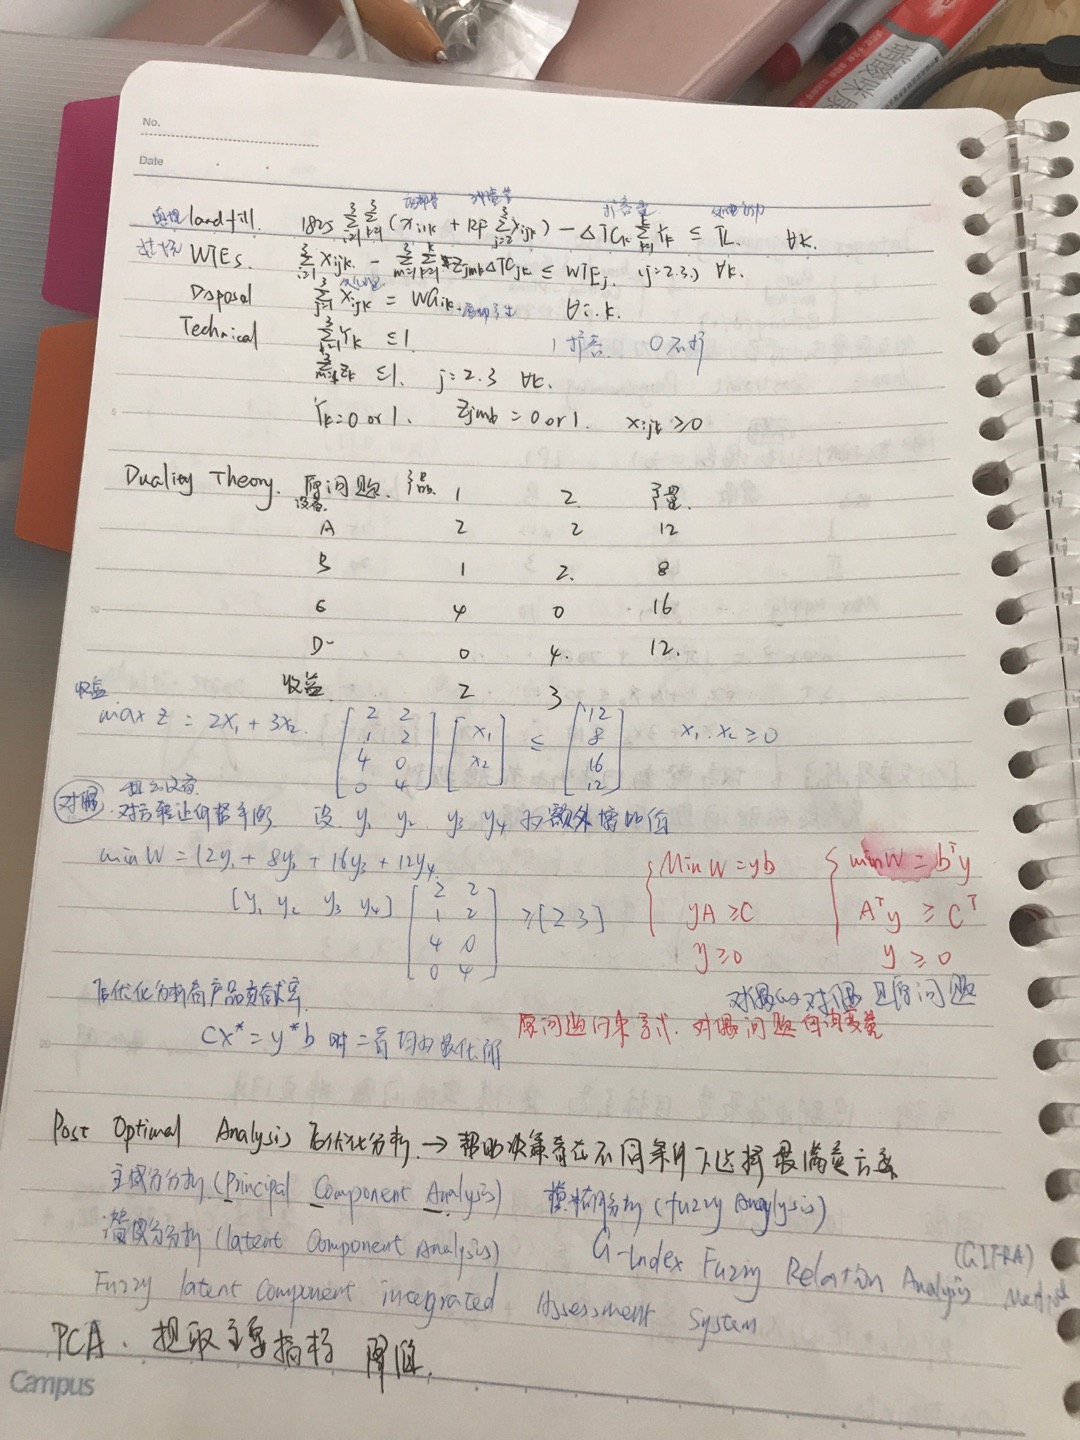 No.
Date
填埋 landfill. 1825 Σ Σ (x_i1k + RF Σ x_ijk) - ΔTC_k Σ Y_k ≤ TL. ∀k.
扩容量
WTEs. Σ x_ijk - Σ Σ Z_jmk ΔTC_jk ≤ WTE_j. (j=2.3.) ∀k.
处理量
Disposal Σ x_ijk = WG_ik. ∀i.k.
Technical Σ Y_k ≤1. 1 扩容. 0 不扩
Σ Z_k ≤1. j=2.3 ∀k.
Y_k=0 or 1. Z_jmk = 0 or 1. x_ijk ≥0
Duality Theory. 原问题. 产品 1 2 产量.
设备.
A 2 2 12
B 1 2. 8
C 4 0 16
D 0 4. 12.
收益 2 3
收益
max z = 2x₁ + 3x₂. [2 2; 1 2; 4 0; 0 4] [x₁; x₂] ≤ [12; 8; 16; 12] x₁.x₂ ≥0
对偶. 设. y₁ y₂ y₃ y₄ 为额外增加值
min W = 12y₁ + 8y₂ + 16y₃ + 12y₄
[y₁ y₂ y₃ y₄] [2 2; 1 2; 4 0; 0 4] ≥ [2 3]
Min W = yb
yA ≥ C
y ≥ 0
min W = bᵀy
Aᵀy ≥ Cᵀ
y ≥ 0
后优化分析看产品贡献率.
对偶的对偶是原问题
原问题约束方式. 对偶问题自由变量
cx* = y*b 时二者均为最优解
Post Optimal Analysis 后优化分析. → 帮助决策者在不同条件下选择最满意方案
主成分分析 (Principal Component Analysis) 模糊分析 (Fuzzy Anaylysis)
潜成分分析 (latent Component Analysis) G-Index Fuzzy Relation Analysis Method (GIFRA)
Fuzzy latent Component integrated Assessment System
PCA. 提取主要指标 降低.
Campus